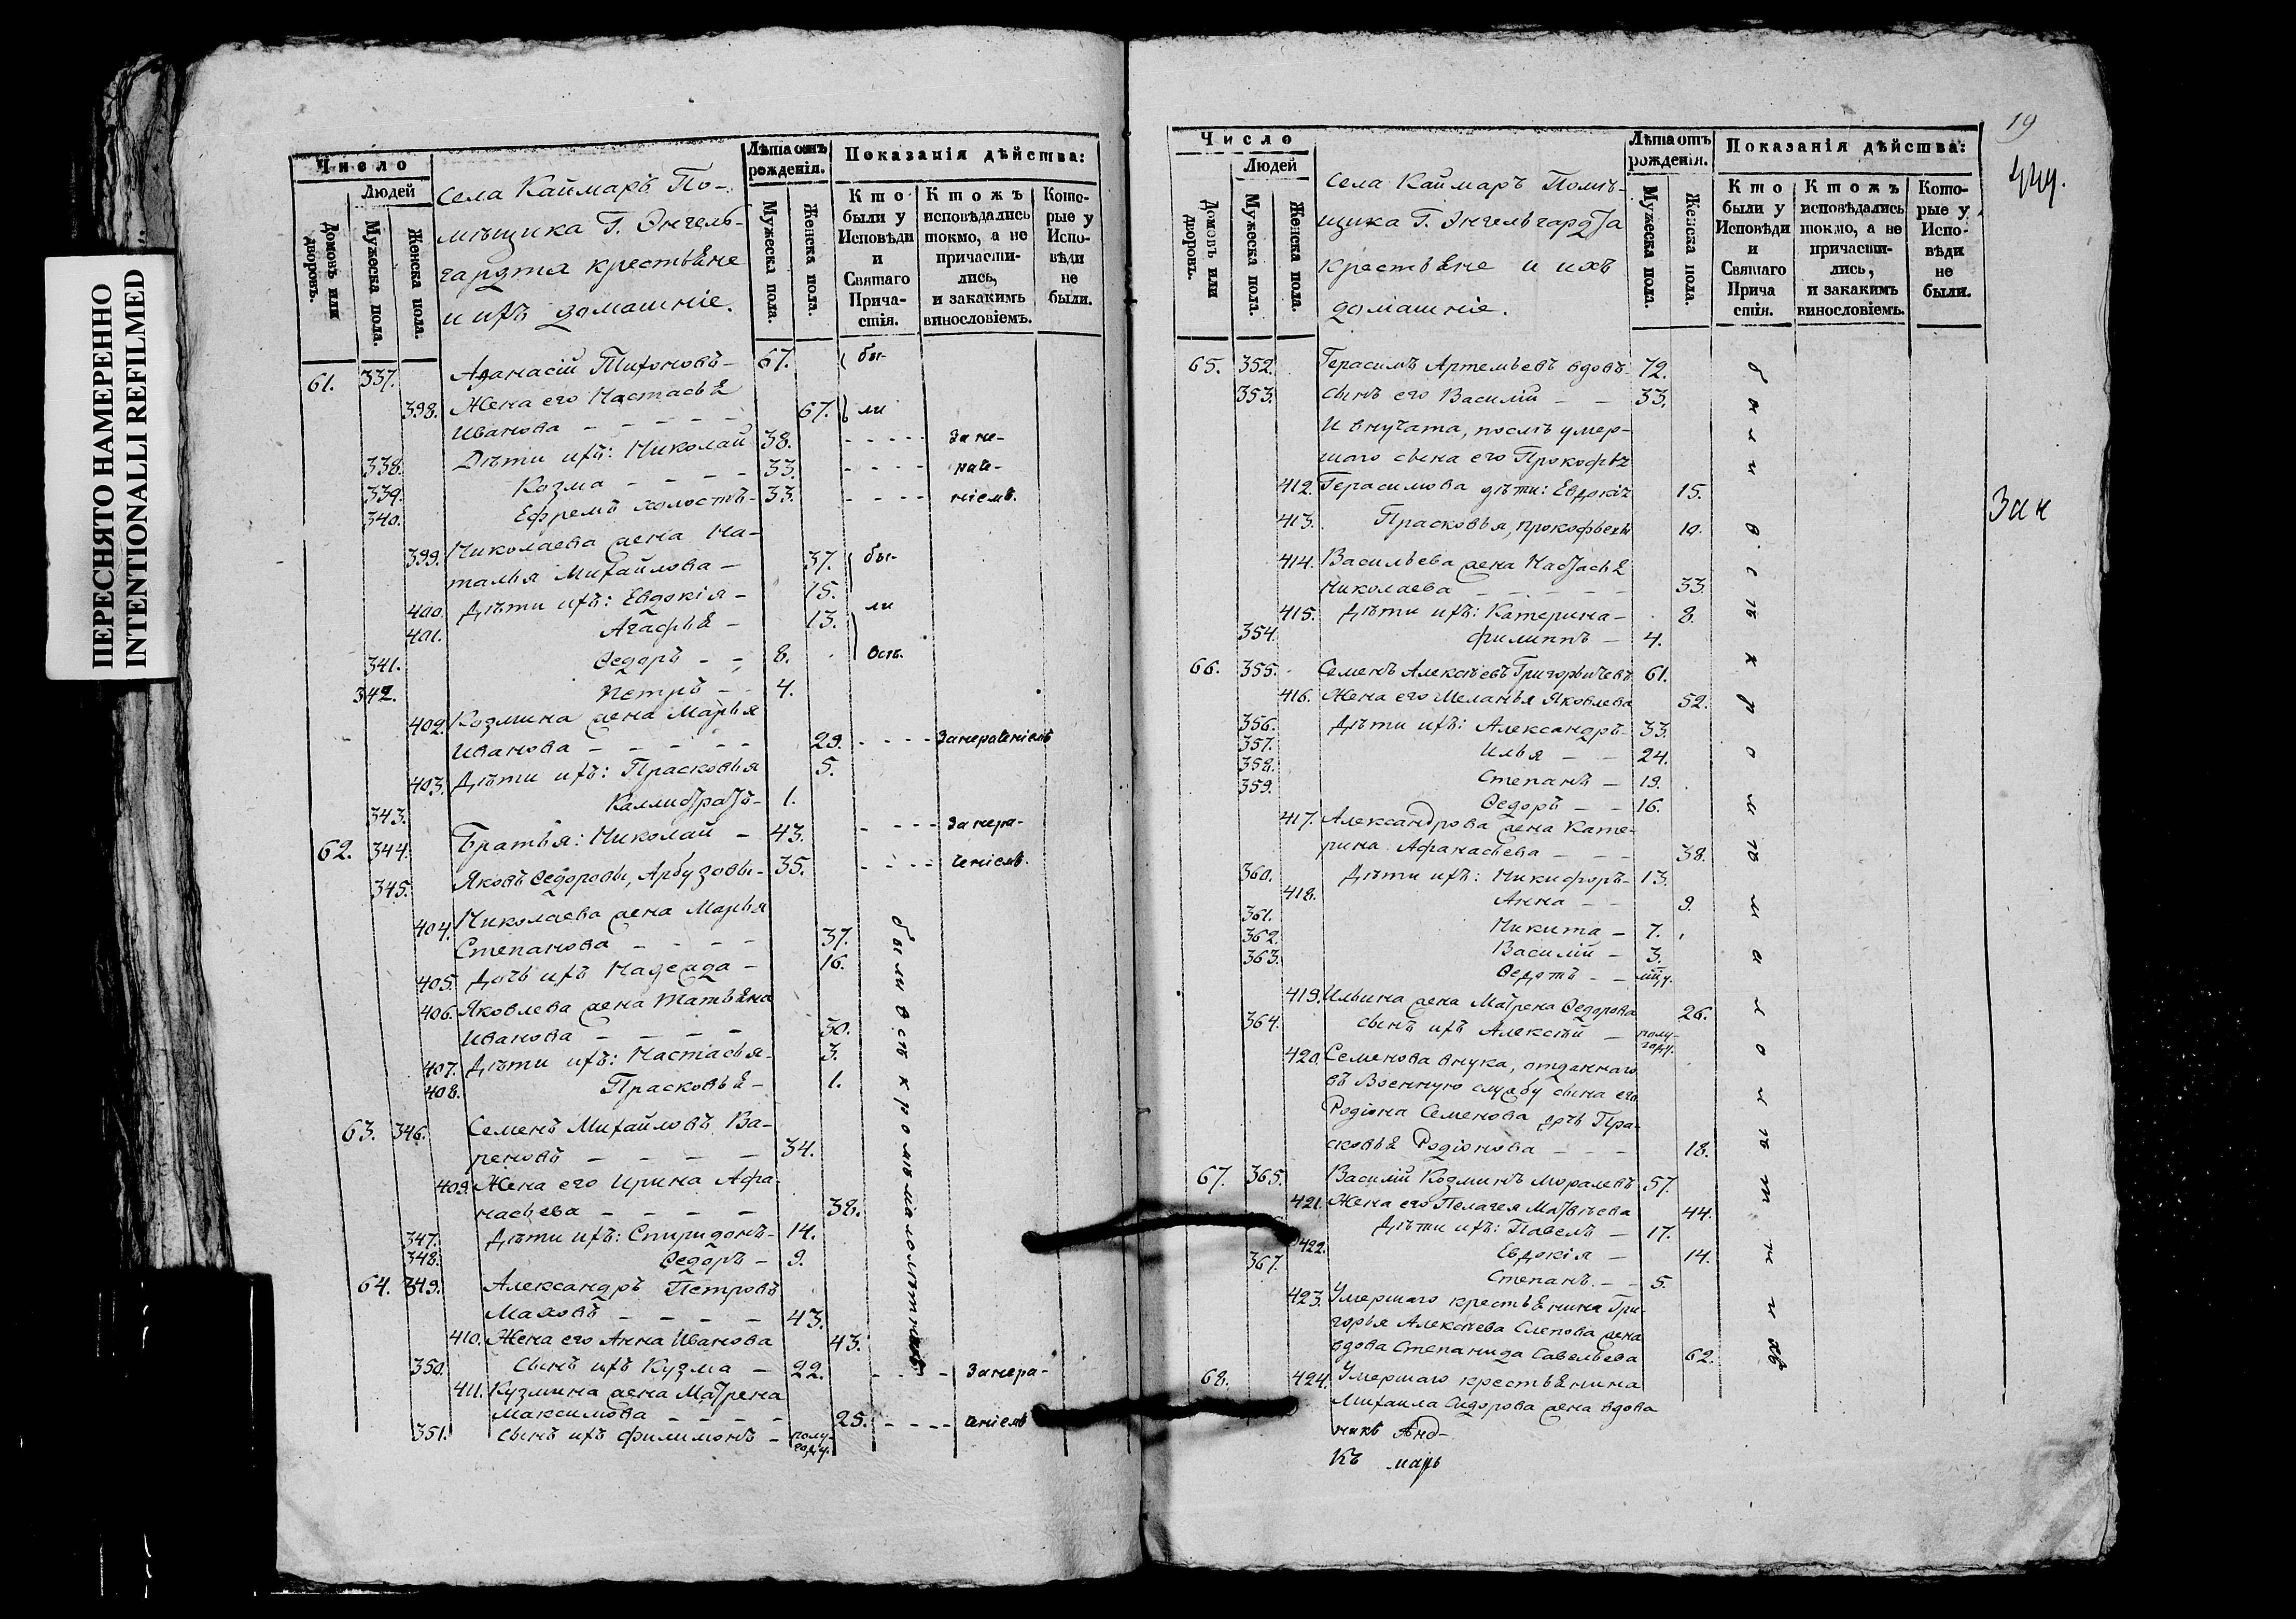 ПЕРЕСНЯТО НАМЕРЕННО
INTENTIONALLI REFILMED
Число
Людей
Домовъ или дворовъ.
Мужеска пола.
Женска пола.
села Каймаръ По-
мѣщика Г. Энгель-
гардта крестьяне
и ихъ домашніе.
Лѣта отъ рожденія.
Мужеска пола.
Женска пола.
Показанія дѣйства:
Кто были у Исповѣди и Святаго Прича-стія.
Ктожъ исповѣдались токмо, а не причасти-лись, и закакимъ винословіемъ.
Кото-рые у Испо-вѣди не были.
61. 337. Аѳанасій Тихоновъ - 67. бы-
398. Жена его Настасья
Иванова - - - - 67. ли
338. Дѣти ихъ: Николай 38. - - - - за не-
339. Козма - - - 33. - - - - раче-
340. Ефремъ холостъ - 33. - - - - ніемъ.
399. Николаева жена На-
талья Михайлова - 37. бы-
400. Дѣти ихъ: Евдокія - 15.
401. Агафья - 13. ли
341. Ѳедоръ - - 8. всѣ.
342. Петръ - - 4.
402. Козмина жена Марья
Иванова - - - - - 29. - - - - За нераченіемъ
403. Дѣти ихъ: Прасковья 5.
343. Каллистратъ - 1.
62. 344. Братья: Николай - 43. - - - - За нера-
345. Яковъ Ѳедоровы, Арбузовы - 35. - - - - ченіемъ.
404. Николаева жена Марья
Степанова - - - - 37.
405. Дочь ихъ Надежда - 16.
406. Яковлева жена Татьяна
Иванова - - - - 30.
407. Дѣти ихъ: Настасья - 3.
408. Прасковья - 1.
были всѣ кромѣ малолѣтныхъ
63. 346. Семенъ Михайловъ Ва-
реновъ - - - - 34.
409. Жена его Ирина Афа-
насьева - - - - 38.
347. Дѣти ихъ: Спиридонъ - 14.
348. Ѳедоръ - 9.
64. 349. Александръ Петровъ
Маховъ - - - - 43.
410. Жена его Анна Иванова 43.
350. Сынъ ихъ Кузма - 22. - - - За нера-
411. Кузмина жена Матрена
Максимова - - - - 25. - - - - ченіемъ
351. Сынъ ихъ Филимонъ - полу-году.
19
Число
Людей
Домовъ или дворовъ.
Мужеска пола.
Женска пола.
села Каймаръ Помѣ-
щика Г. Энгельгардта
крестьяне и ихъ
домашніе.
Лѣта отъ рожденія.
Мужеска пола.
Женска пола.
Показанія дѣйства:
Кто были у Исповѣди и Святаго Прича стія.
Ктожъ исповѣдались токмо, а не причасти-лись, и закакимъ винословіемъ.
Кото-рые у Испо-вѣди не были.
65. 352. Герасимъ Артемьевъ вдовъ 72.
353. Сынъ его Василій - - 33.
И внучата, послѣ умер-
шаго сына его Прокофья
412. Герасимова дѣти: Евдокія 15.
413. Прасковья, Прокофьевы 10.
414. Васильева жена Настасья
Николаева - - - - - 33.
415. Дѣти ихъ: Катерина - 8.
354. Филиппъ - 4.
66. 355. Семенъ Алексѣевъ Григорьичевъ 61.
416. Жена его Меланья Яковлева 52.
356. Дѣти ихъ: Александръ - 33.
357. Илья - - 24.
358. Степанъ - 19.
359. Ѳедоръ - - 16.
417. Александрова жена Кате-
рина Афанасьева - - - 38.
360. Дѣти ихъ: Никифоръ - 13.
418. Анна - - 9.
361. Никита - 7.
362. Василій - 3.
363. Ѳедотъ - -
419. Ильина жена Матрена Ѳедорова 26.
364. Сынъ ихъ Алексѣй - полу-году.
420. Семенова внука, отданнаго
въ военную службу сына его
Родіона Семенова дочь Пра-
сковья Родіонова - - - 18.
67. 365. Василій Козминъ Моралевъ 57.
421. Жена его Пелагея Матвѣева 44.
Дѣти ихъ: Павелъ - 17.
422. Евдокія - 14.
367. Степанъ - - 5.
423. Умершаго крестьянина Гри-
горья Алексѣева Слепова жена
вдова Степанида Савельева 62.
68. 424. Умершаго крестьянина
Михаила Сидорова жена вдова
были всѣ кромѣ малолѣтныхъ